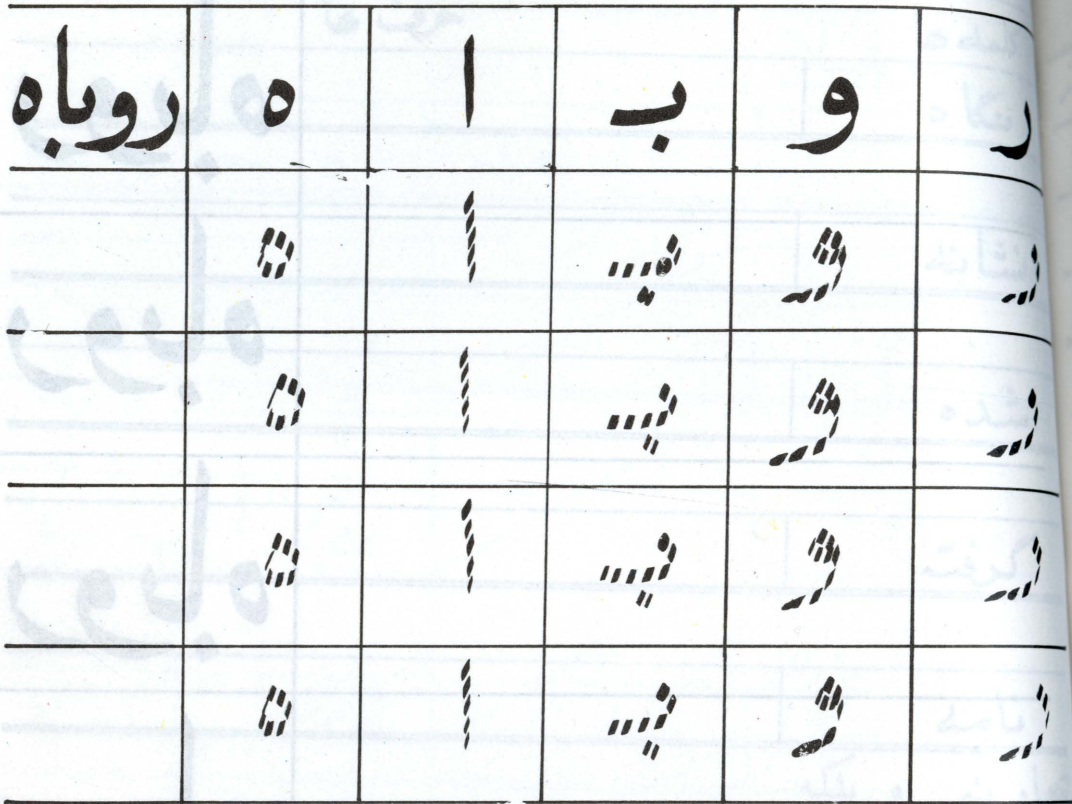 ر و ب ا ه روباه
ر و ب ا ه
ر و ب ا ه
ر و ب ا ه
ر و ب ا ه